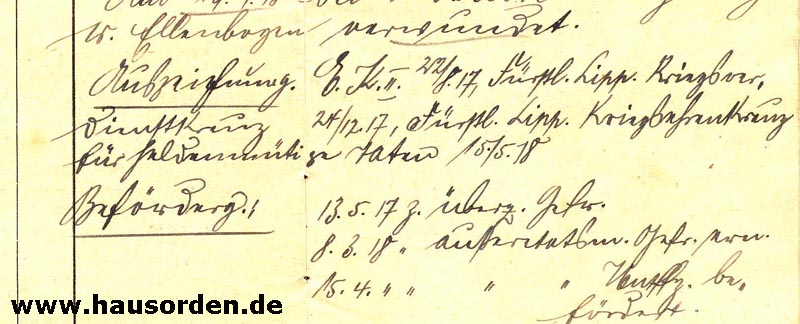 u. Ellenbogen verwundet.
Auszeichnung. E. K. II. 22/8.17, Fürstl. Lipp. Kriegsver,
dienstkreuz 24/12.17, Fürstl. Lipp. Kriegsehrenkreuz
für heldenmütige Taten 15/5.18
Beförderg.:
13.5.17 z. überz. Gefr.
8.3.18 " außeretatsm. Gefr. ern.
15.4. " " " " Untffz. be„
fördert.
www.hausorden.de